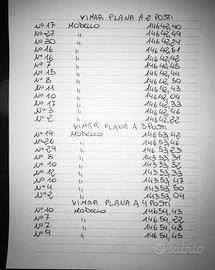 VIMAR PLANA A 2 POSTI
N° 17 MODELLO 14642,40
N° 27 " 14642,49
N° 20 " 14642,24
N° 16 " 14642,61
N° 16 " 14642,42
N° 7 " 14642,45
N° 15 " 14642,44
N° 8 " 14642,50
N° 11 " 14642,43
N° 10 " 14642,04
N° 17 " 14642,33
N° 3 " 14642,46
N° 2 " 14642,22
VIMAR PLANA A 3 POSTI
N° 19 MODELLO 14653,42
N° 26 " 14653,46
N° 29 " 14653,23
N° 8 " 14353,31
N° 10 " 14353,32
N° 12 " 14353,33
N° 10 " 14353,47
N° 4 " 14353,50
N° 2 " 14353,04
VIMAR PLANA A 4 POSTI
N° 10 MODELLO 14654,43
N° 7 " 14654,22
N° 7 " 14654,48
N° 9 " 14654,45
Subito